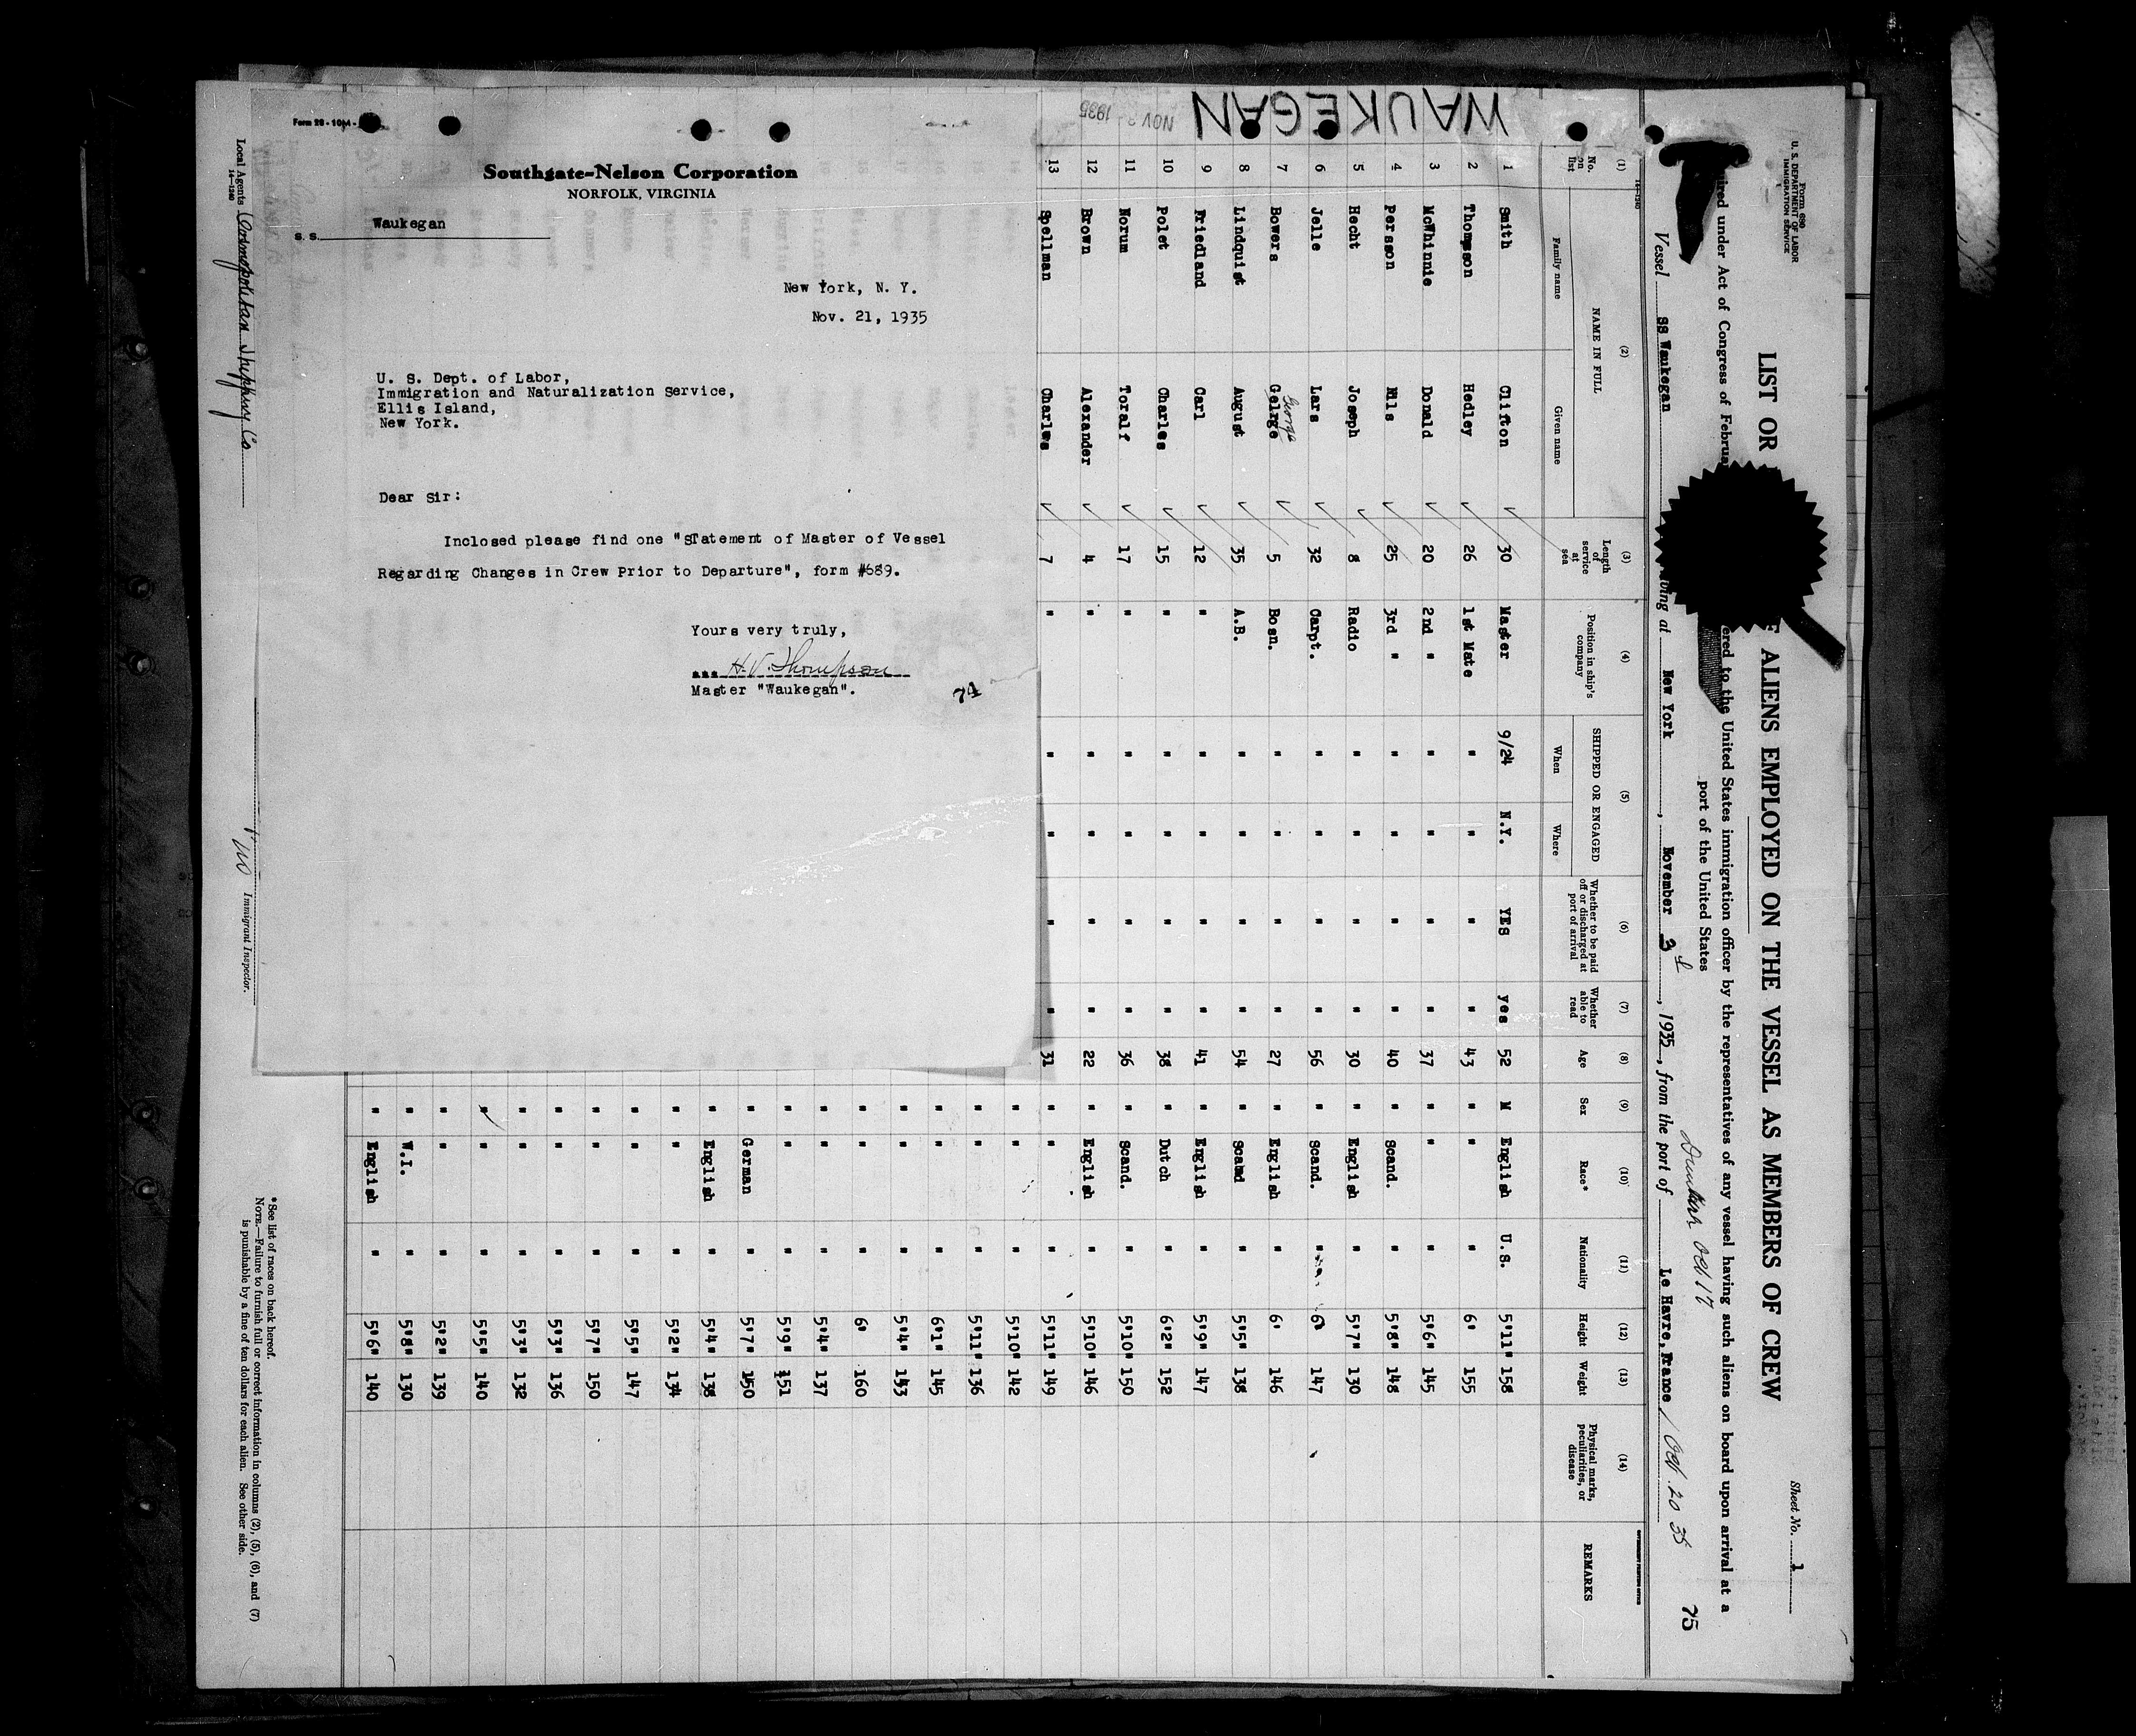 Form 28-1014-
Southgate-Nelson Corporation
NORFOLK, VIRGINIA
S. S. Waukegan
New York, N. Y.
Nov. 21, 1935
U. S. Dept. of Labor,
Immigration and Naturalization Service,
Ellis Island,
New York.
Dear Sir:
Inclosed please find one "STatement of Master of Vessel
Regarding Changes in Crew Prior to Departure", form #689.
Yours very truly,
H. V. Thompson
Master "Waukegan".
74
WAUKEGAN
NOV 1935
Form 689
U. S. DEPARTMENT OF LABOR
IMMIGRATION SERVICE
Sheet No. 1
LIST OR ALIENS EMPLOYED ON THE VESSEL AS MEMBERS OF CREW
under Act of Congress of to the United States immigration officer by the representatives of any vessel having such aliens on board upon arrival at a
port of the United States
Dunkirk Oct 17
75
Vessel SS Waukegan at New York, November 3d, 1935, from the port of Le Havre, France / Oct. 20 35
(1) (2) (3) (4) (5) (6) (7) (8) (9) (10) (11) (12) (13) (14)
No. on list NAME IN FULL Family name Given name Length of service at sea Position in ship's company SHIPPED OR ENGAGED When Where Whether to be paid off or discharged at port of arrival Whether able to read Age Sex Race* Nationality Height Weight Physical marks, peculiarities, or disease REMARKS
1 Smith Clifton 30 Master 9/24 N.Y. YES yes 52 M English U.S. 5'11" 158
2 Thompson Hedley 26 1st Mate " " " " 43 " " " 6' 155
3 McWhinnie Donald 20 2nd " " " " " 37 " " " 5'6" 145
4 Persson Nils 25 3rd " " " " " 40 " Scand. " 5'8" 148
5 Hecht Joseph 8 Radio " " " " 30 " English " 5'7" 130
6 Jelle Lars 32 Carpt. " " " " 56 " Scand. " 6' 147
7 Bowers Gelrge George 5 Bosn. " " " " 27 " English " 6' 146
8 Lindquist August 35 A.B. " " " " 54 " Scand " 5'5" 138
9 Friedland Carl 12 " " " " " 41 " English " 5'9" 147
10 Polet Charles 15 " " " " " 38 " Dutch " 6'2" 152
11 Norum Toralf 17 " " " " " 36 " Scand. " 5'10" 150
12 Brown Alexander 4 " " " " " 22 " English " 5'10" 146
13 Spellman Charles 7 " " " " " 31 " " " 5'11" 149
" " " 5'10" 142
" " " 5'11" 136
" " " 6'1" 145
" " " 5'4" 143
" " " 6' 160
" " " 5'4" 137
" " " 5'9" 151
" German " 5'7" 150
" English " 5'4" 138
" " " 5'2" 134
" " " 5'5" 147
" " " 5'7" 150
" " " 5'3" 136
" " " 5'3" 132
" " " 5'5" 140
" " " 5'2" 139
" W.I. " 5'8" 130
" English " 5'6" 140
*See list of races on back hereof.
NOTE.—Failure to furnish full or correct information in columns (2), (5), (6), and (7)
is punishable by a fine of ten dollars for each alien. See other side.
Local Agents Cosmopolitan Shipping Co
14-1240
Immigrant Inspector.